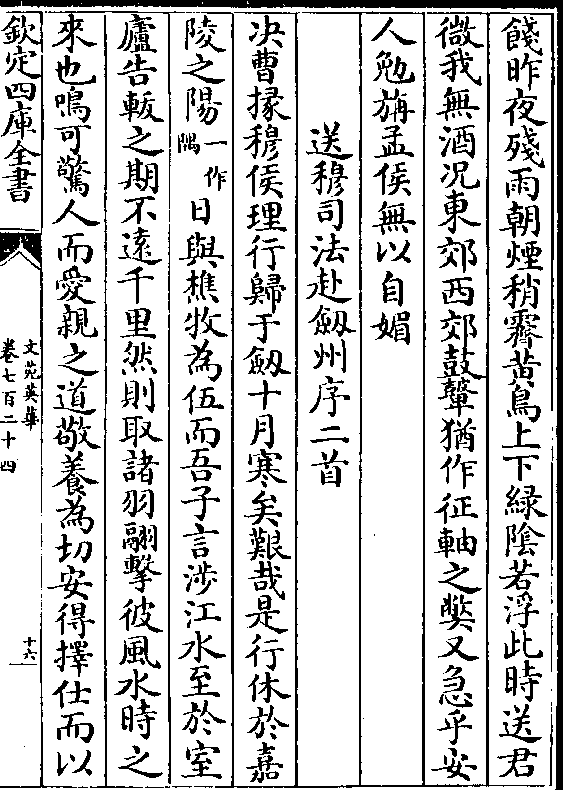 餞昨夜殘雨朝煙稍霽黃鳥上下緑陰若浮此時送君
微我無酒况東郊西郊鼓鼙猶作征軸之弊又急乎安
人勉旃孟侯無以自媚
送穆司法赴劒州序二首
决曹掾穆侯理行歸于劒十月寒矣艱哉是行休於嘉
陵之陽一作隅日與樵牧為伍而吾子言涉江水至於室
廬告輟之期不遠千里然則取諸羽翮擊彼風水時之
來也鳴可驚人而愛親之道敬養為切安得擇仕而以
欽定四庫全書
文苑英華
卷七百二十四
十六